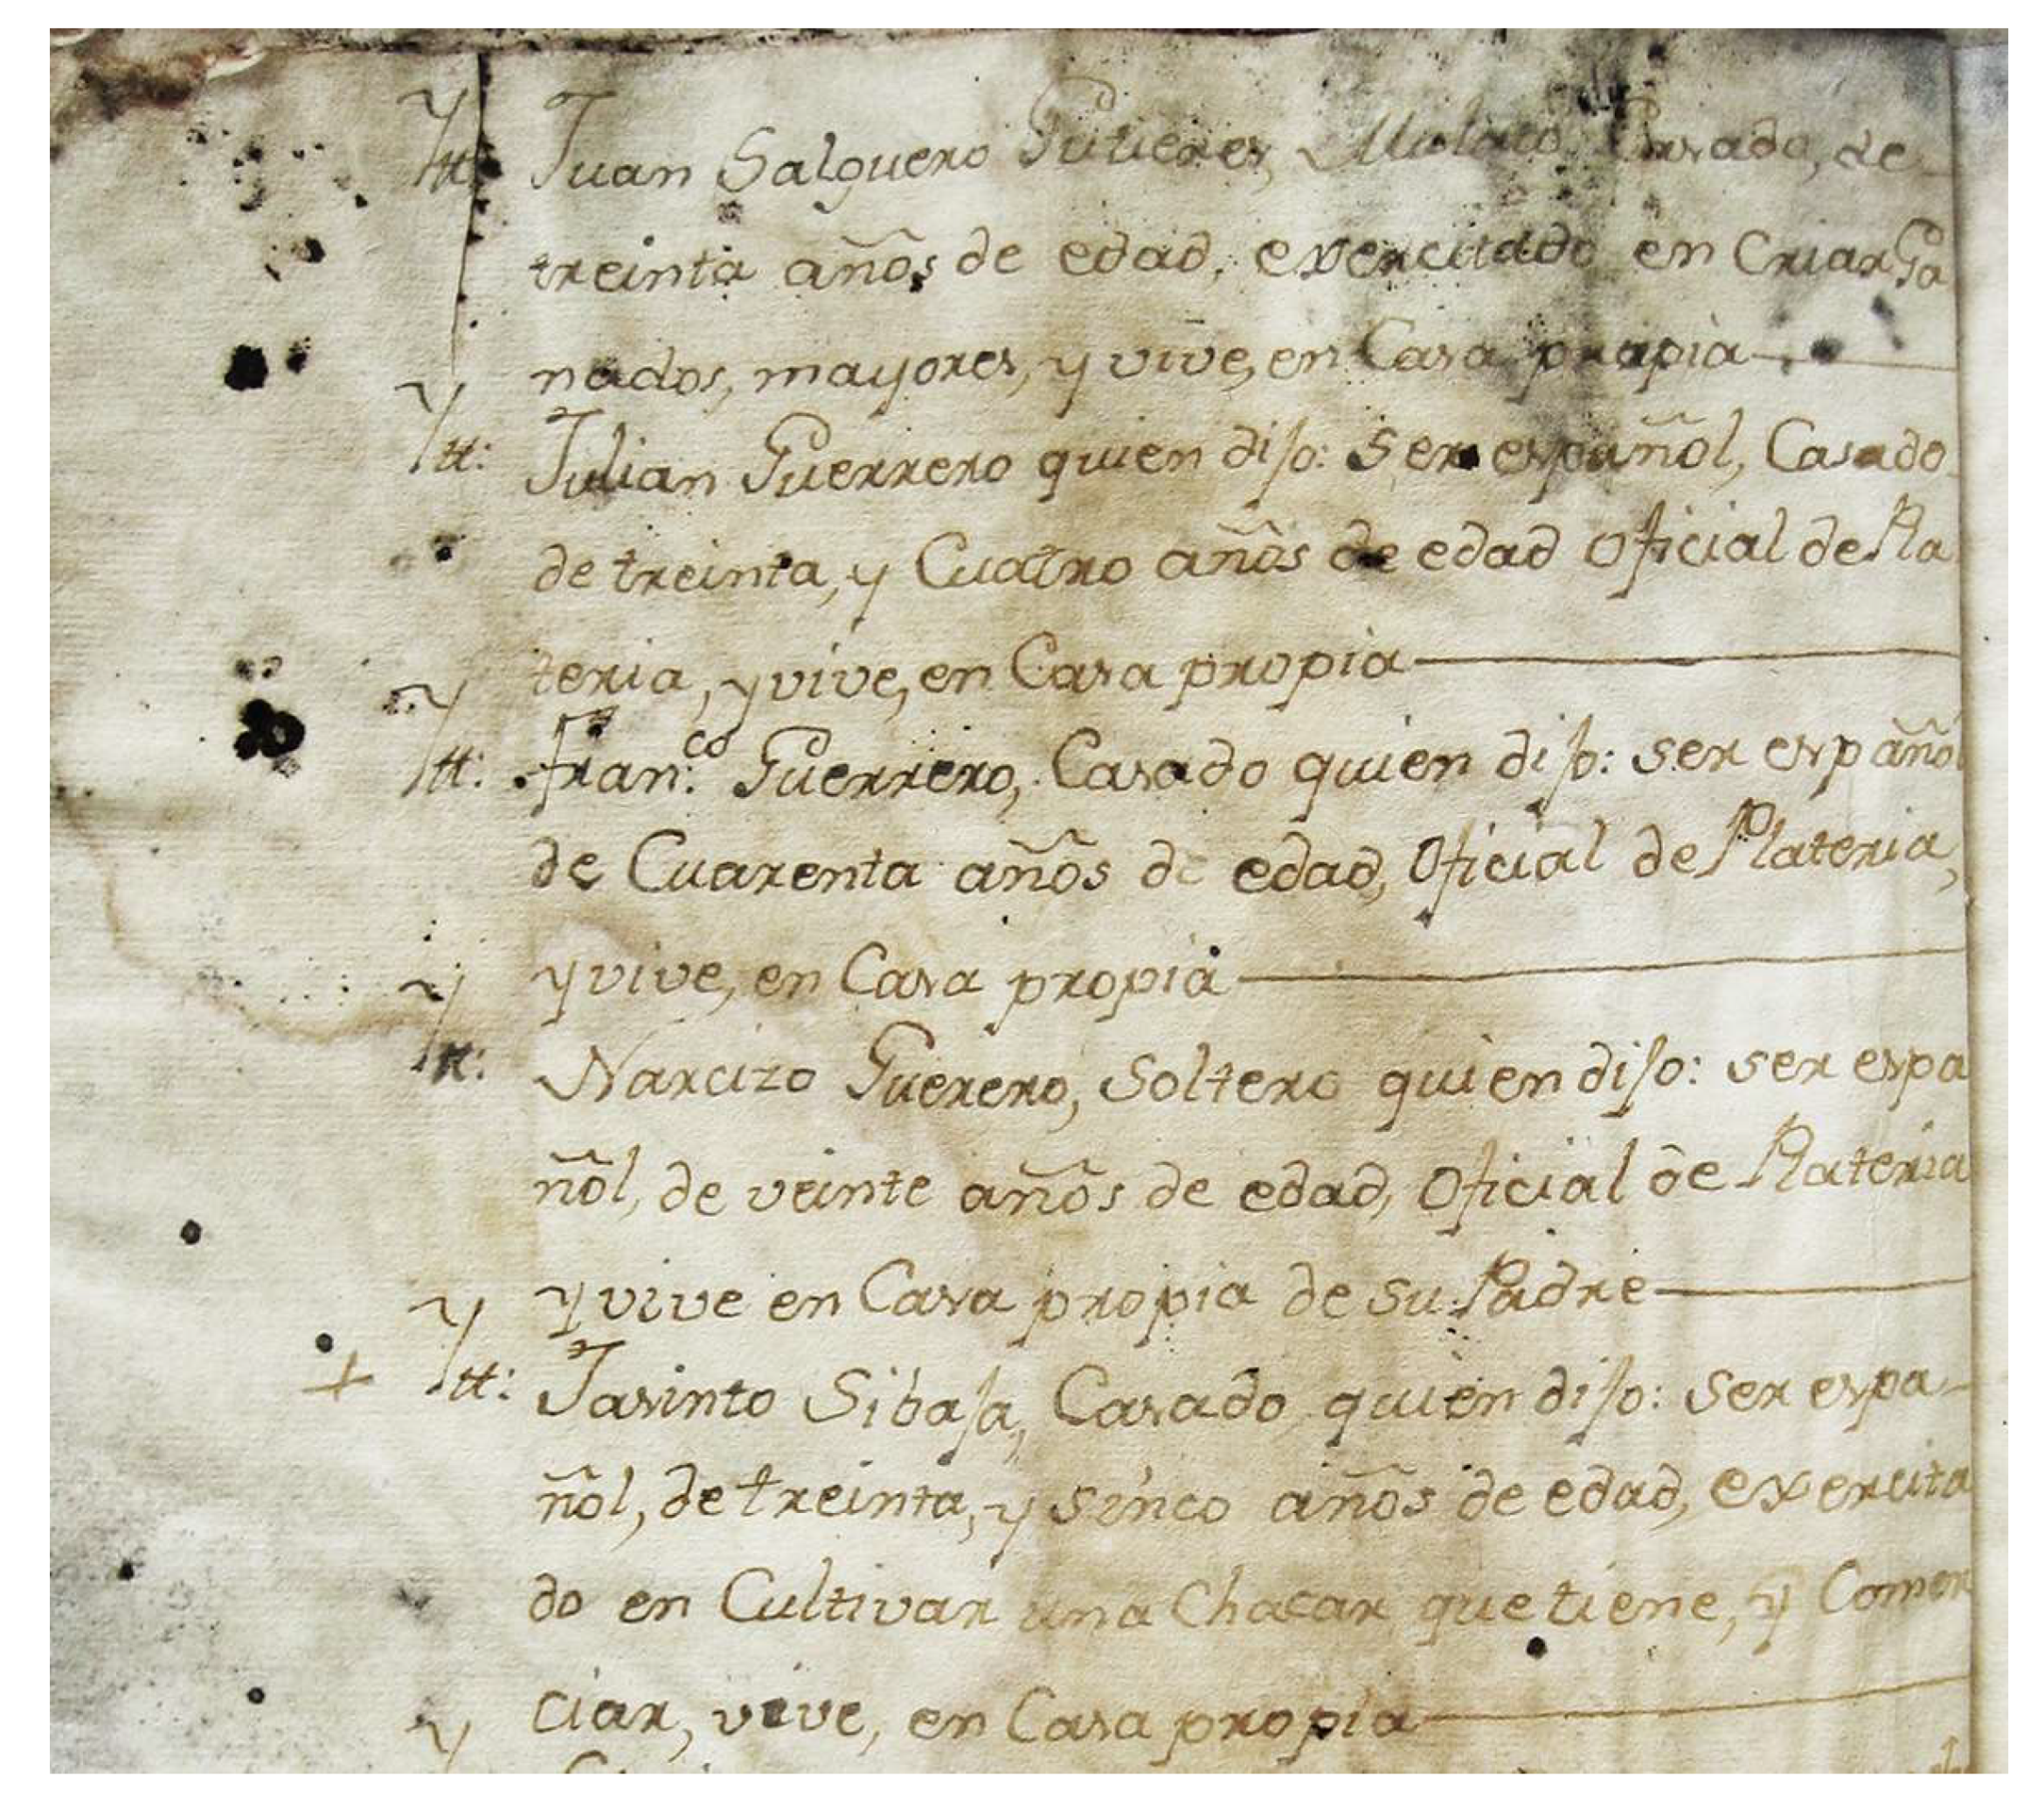 Ytt: Juan Salguero Gutieres, Mulato, Casado, de
treinta años de edad, exercitado en Criar Ga
nados, mayores, y vive, en Casa propia
Ytt: Julian Guerrero quien dijo: ser español, Casado
de treinta, y Cuatro años de edad Oficial de Pla
teria, y vive, en Casa propia
Ytt: Fran.co Guerrero, Casado quien dijo: ser español
de Cuarenta años de edad, Oficial de Plateria,
y vive, en Casa propia
Ytt: Narcizo Guerero, Soltero quien dijo: ser espa
ñol, de veinte años de edad, Oficial de Plateria
y vive en Casa propia de su Padre
+ Ytt: Jasinto Sibaja, Casado, quien dijo: ser espa-
ñol, de treinta, y sinco años de edad, exercita
do en Cultivar una Chacar que tiene, y Comer
ciar, vive, en Casa propia